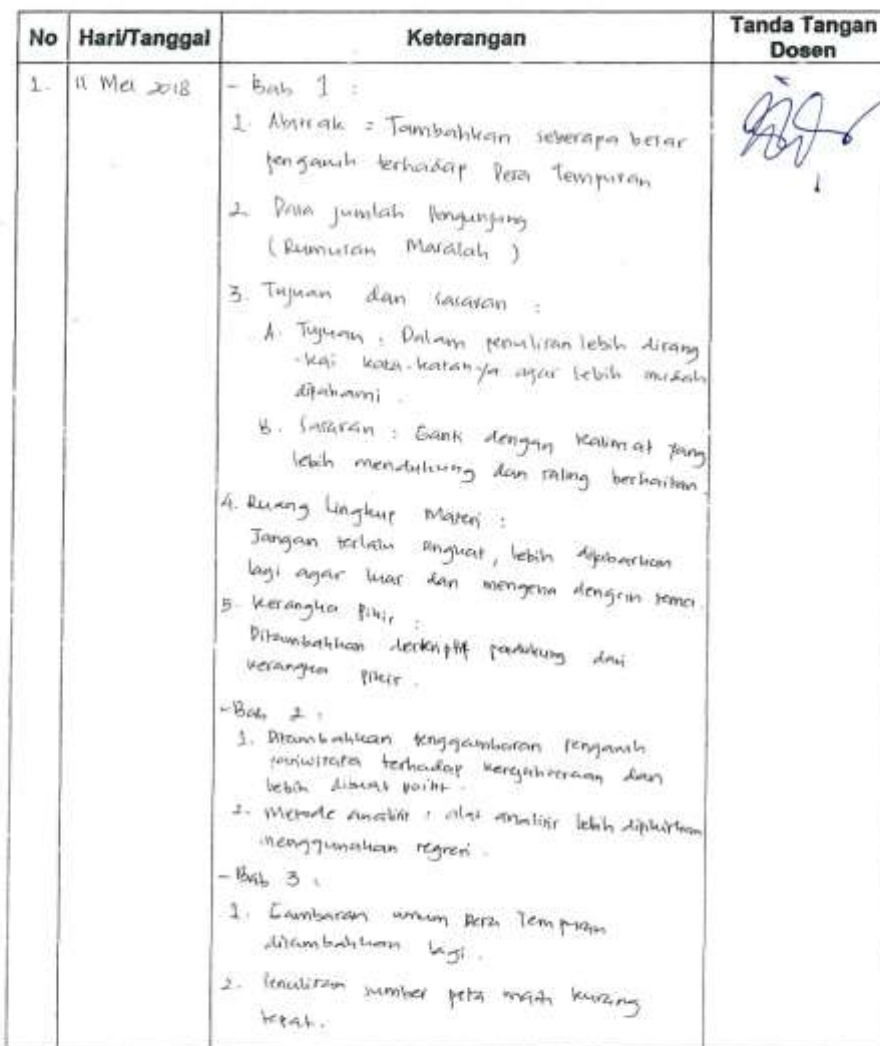 No Hari/Tanggal Keterangan Tanda Tangan Dosen
1. 11 Mei 2018 - Bab 1 :
1. Abstrak = Tambahkan seberapa besar
pengaruh terhadap Desa Tempuran
2. Data jumlah Pengunjung
(Rumusan Masalah )
3. Tujuan dan sasaran :
A. Tujuan : Dalam penulisan lebih dirang
-kai kata-katanya agar lebih mudah
dipahami .
B. Sasaran : Ganti dengan kalimat yang
lebih mendukung dan saling berkaitan.
4. Ruang lingkup Materi :
Jangan terlalu singkat, lebih dijabarkan
lagi agar luas dan mengena dengan tema.
5. Kerangka Pikir :
Ditambahkan deskriptif pendukung dari
kerangka pikir .
- Bab 2 :
1. Ditambahkan penggambaran pengaruh
pariwisata terhadap kesejahteraan dan
lebih dibuat point .
2. Metode analisis : alat analisis lebih dipikirkan
menggunakan regresi .
- Bab 3 :
1. Gambaran umum Desa Tempuran
ditambahkan lagi .
2. Penulisan sumber peta masih kurang
tepat.